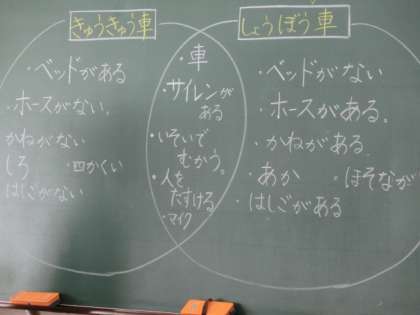 きゅうきゅう車
・ベッドがある
・ホースがない。
かねがない
しろ ・四かくい
はしごがない
・車
・サイレンが
ある
・いそいで
むかう。
・人を
たすける
・マイク
しょうぼう車
・ベッドがない
・ホースがある。
・かねがある
・あか ・ほそなが
・はしごがある